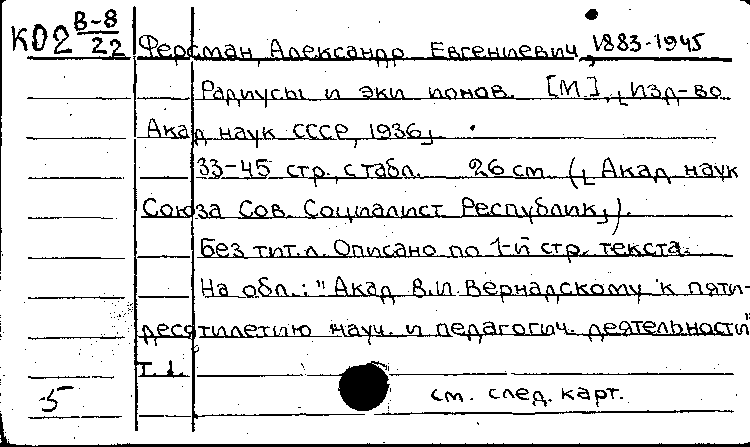 К02 В-8/22
Ферсман, Александр Евгениевич, 1883-1945
Радиусы и эки ионов. [М.], [Изд-во
Акад наук СССР, 1936].
33-45 стр., с табл. 26 см. ([Акад наук
Союза Сов. Социалист Республик]).
Без тит. л. Описано по 1-й стр. текста.
На обл.: "Акад В.И. Вернадскому к пяти-
десятилетию науч. и педагогич. деятельности"
т. 1.
5 см. след. карт.